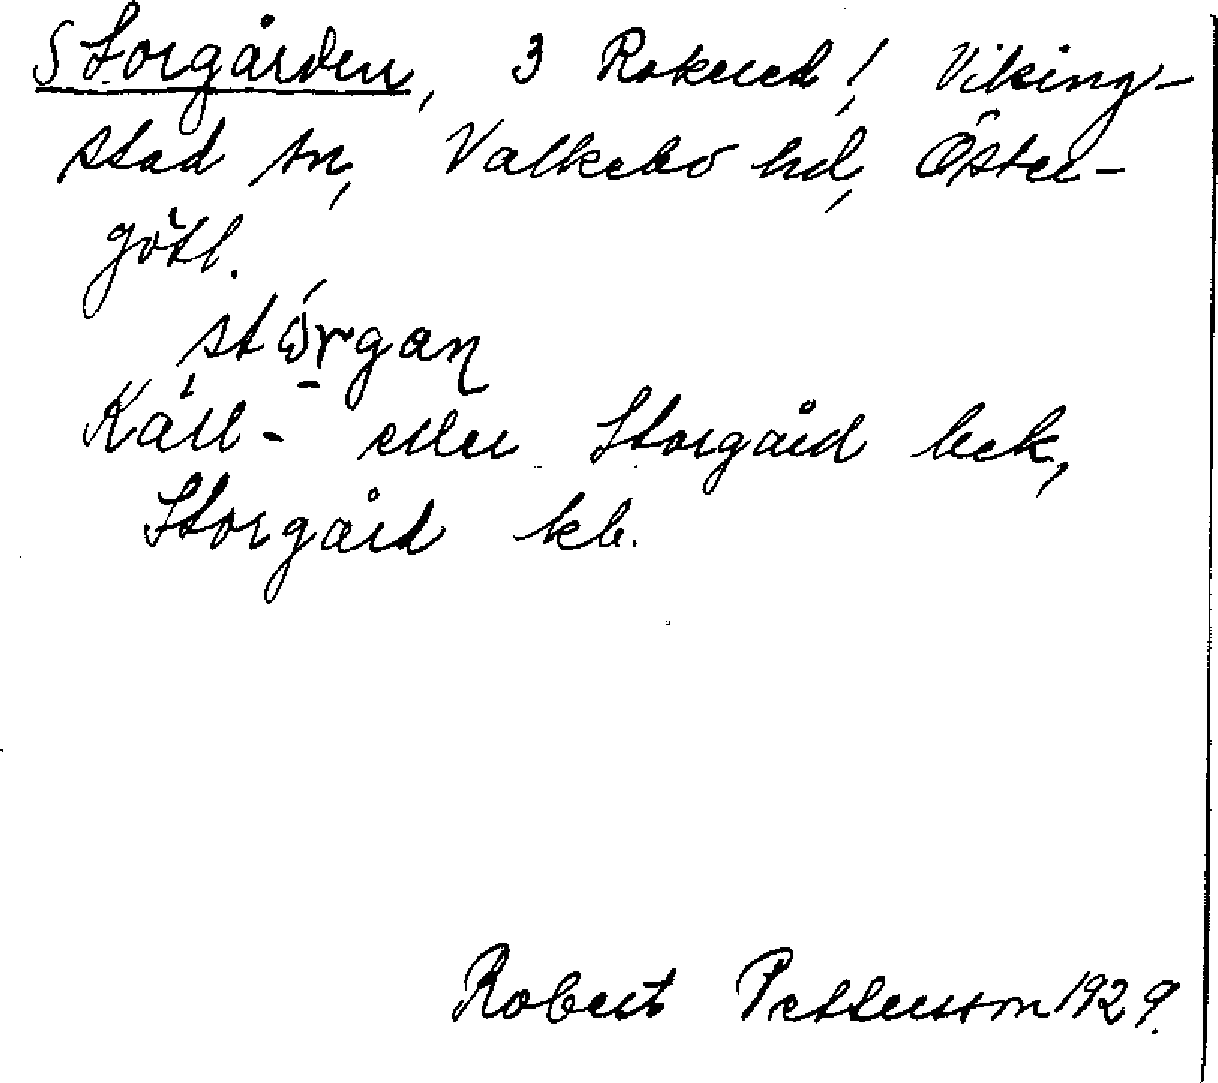 Storgården, 3 Rakered, Viking-
stad sn, Valkebo hd, Öster-
götl.
stórgaɳ
Käll- eller Storgård bek,
Storgård kb.
Robert Pettersson 1929.